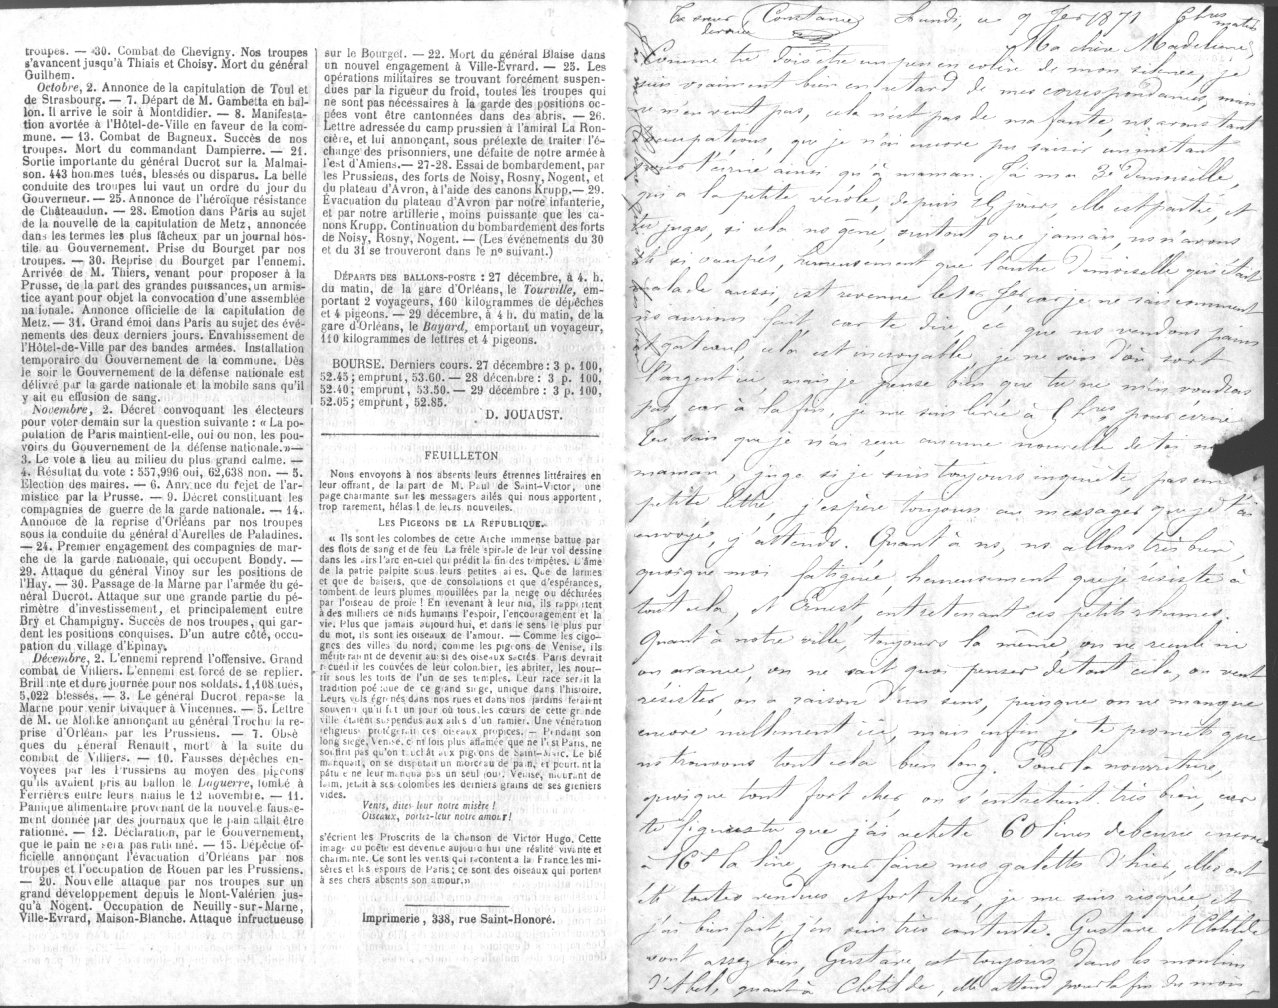 troupes. — 30. Combat de Chevigny. Nos troupes
s'avancent jusqu'à Thiais et Choisy. Mort du général
Guilhem.
Octobre, 2. Annonce de la capitulation de Toul et
de Strasbourg. — 7. Départ de M. Gambetta en bal-
lon. Il arrive le soir à Montdidier. — 8. Manifesta-
tion avortée à l'Hôtel-de-Ville en faveur de la com-
mune. — 13. Combat de Bagneux. Succès de nos
troupes. Mort du commandant Dampierre. — 21.
Sortie importante du général Ducrot sur la Malmai-
son. 443 hommes tués, blessés ou disparus. La belle
conduite des troupes lui vaut un ordre du jour du
Gouverneur. — 25. Annonce de l'héroïque résistance
de Châteaudun. — 28. Emotion dans Paris au sujet
de la nouvelle de la capitulation de Metz, annoncée
dans les termes les plus fâcheux par un journal hos-
tile au Gouvernement. Prise du Bourget par nos
troupes. — 30. Reprise du Bourget par l'ennemi.
Arrivée de M. Thiers, venant pour proposer à la
Prusse, de la part des grandes puissances, un armis-
tice ayant pour objet la convocation d'une assemblée
nationale. Annonce officielle de la capitulation de
Metz. — 31. Grand émoi dans Paris au sujet des évé-
nements des deux derniers jours. Envahissement de
l'Hôtel-de-Ville par des bandes armées. Installation
temporaire du Gouvernement de la commune. Dès
le soir le Gouvernement de la défense nationale est
délivré par la garde nationale et la mobile sans qu'il
y ait eu effusion de sang.
Novembre, 2. Décret convoquant les électeurs
pour voter demain sur la question suivante : « La po-
pulation de Paris maintient-elle, oui ou non, les pou-
voirs du Gouvernement de la défense nationale.»—
3. Le vote a lieu au milieu du plus grand calme. —
4. Résultat du vote : 557,996 oui, 62,638 non. — 5.
Election des maires. — 6. Annonce du rejet de l'ar-
mistice par la Prusse. — 9. Décret constituant les
compagnies de guerre de la garde nationale. — 14.
Annonce de la reprise d'Orléans par nos troupes
sous la conduite du général d'Aurelles de Paladines.
— 24. Premier engagement des compagnies de mar-
che de la garde nationale, qui occupent Bondy. —
29. Attaque du général Vinoy sur les positions de
l'Hay. — 30. Passage de la Marne par l'armée du gé-
néral Ducrot. Attaque sur une grande partie du pé-
rimètre d'investissement, et principalement entre
Bry et Champigny. Succès de nos troupes, qui gar-
dent les positions conquises. D'un autre côté, occu-
pation du village d'Epinay.
Décembre, 2. L'ennemi reprend l'offensive. Grand
combat de Villiers. L'ennemi est forcé de se replier.
Brillante et dure journée pour nos soldats. 1,108 tués,
5,022 blessés. — 3. Le général Ducrot repasse la
Marne pour venir bivaquer à Vincennes. — 5. Lettre
de M. de Moltke annonçant au général Trochu la re-
prise d'Orléans par les Prussiens. — 7. Obsè
ques du général Renault, mort à la suite du
combat de Villiers. — 10. Fausses dépêches en-
voyées par les Prussiens au moyen des pigeons
qu'ils avaient pris au ballon le Daguerre, tombé à
Ferrières entre leurs mains le 12 novembre. — 11.
Panique alimentaire provenant de la nouvelle fausse-
ment donnée par des journaux que le pain allait être
rationné. — 12. Déclaration, par le Gouvernement,
que le pain ne sera pas rationné. — 15. Dépêche of-
ficielle annonçant l'évacuation d'Orléans par nos
troupes et l'occupation de Rouen par les Prussiens.
— 20. Nouvelle attaque par nos troupes sur un
grand développement depuis le Mont-Valérien jus-
qu'à Nogent. Occupation de Neuilly-sur-Marne,
Ville-Evrard, Maison-Blanche. Attaque infructueuse
sur le Bourget. — 22. Mort du général Blaise dans
un nouvel engagement à Ville-Evrard. — 25. Les
opérations militaires se trouvant forcément suspen-
dues par la rigueur du froid, toutes les troupes qui
ne sont pas nécessaires à la garde des positions oc-
pées vont être cantonnées dans des abris. — 26.
Lettre adressée du camp prussien à l'amiral La Ron-
cière, et lui annonçant, sous prétexte de traiter l'é-
change des prisonniers, une défaite de notre armée à
l'est d'Amiens.— 27-28. Essai de bombardement, par
les Prussiens, des forts de Noisy, Rosny, Nogent, et
du plateau d'Avron, à l'aide des canons Krupp.— 29.
Evacuation du plateau d'Avron par notre infanterie,
et par notre artillerie, moins puissante que les ca-
nons Krupp. Continuation du bombardement des forts
de Noisy, Rosny, Nogent. — (Les événements du 30
et du 31 se trouveront dans le nº suivant.)
DÉPARTS DES BALLONS-POSTE : 27 décembre, à 4. h.
du matin, de la gare d'Orléans, le Tourville, em-
portant 2 voyageurs, 160 kilogrammes de dépêches
et 4 pigeons. — 29 décembre, à 4 h. du matin, de la
gare d'Orléans, le Bayard, emportant un voyageur,
110 kilogrammes de lettres et 4 pigeons.
BOURSE. Derniers cours. 27 décembre : 3 p. 100,
52.45; emprunt, 53.60. — 28 décembre : 3 p. 100,
52.40; emprunt, 53.50. — 29 décembre : 3 p. 100,
52.05; emprunt, 52.85.
D. JOUAUST.
FEUILLETON
Nous envoyons à nos absents leurs étrennes littéraires en
leur offrant, de la part de M. Paul de Saint-Victor, une
page charmante sur les messagers ailés qui nous apportent,
trop rarement, hélas ! de leurs nouvelles.
LES PIGEONS DE LA RÉPUBLIQUE.
« Ils sont les colombes de cette Arche immense battue par
des flots de sang et de feu. La frêle spirale de leur vol dessine
dans les airs l'arc en-ciel qui prédit la fin des tempêtes. L'âme
de la patrie palpite sous leurs petites ailes. Que de larmes
et que de baisers, que de consolations et que d'espérances,
tombent de leurs plumes mouillées par la neige ou déchirées
par l'oiseau de proie ! En revenant à leur nid, ils rapportent
à des milliers de nids humains l'espoir, l'encouragement et la
vie. Plus que jamais aujourd'hui, et dans le sens le plus pur
du mot, ils sont les oiseaux de l'amour. — Comme les cigo-
gnes des villes du nord, comme les pigeons de Venise, ils
mériteraient de devenir aussi des oiseaux sacrés. Paris devrait
recueillir les couvées de leur colombier, les abriter, les nour-
rir sous les toits de l'un de ses temples. Leur race serait la
tradition poétique de ce grand siège, unique dans l'histoire.
Leurs vols égrenés dans nos rues et dans nos jardins feraient
souvenir qu'il fut un jour où tous les cœurs de cette grande
ville étaient suspendus aux ailes d'un ramier. Une vénération
religieuse protégerait ces oiseaux propices. — Pendant son
long siège, Venise, cent fois plus affamée que ne l'est Paris, ne
souffrit pas qu'on touchât aux pigeons de Saint-Marc. Le blé
manquait, on se disputait un morceau de pain, et pourtant la
pâture ne leur manqua pas un seul jour. Venise, mourant de
faim, jetait à ses colombes les derniers grains de ses greniers
vides.
Vents, dites-leur notre misère !
Oiseaux, portez-leur notre amour !
s'écrient les Proscrits de la chanson de Victor Hugo. Cette
image du poète est devenue aujourd'hui une réalité vivante et
charmante. Ce sont les vents qui racontent à la France les mi-
sères et les espoirs de Paris; ce sont des oiseaux qui portent
à ses chers absents son amour.»
Imprimerie, 338, rue Saint-Honoré.
Ta sœur Constance Lundi, ce 9 Jer 1871 5 hres matin
Ma chère Madeleine,
Comme tu dois être un peu en colère de mon silence, je
suis vraiment bien en retard de mes correspondances, mais
ne m'en veut pas, cela n'est pas de ma faute, ns avons tant
d'occupations, que je n'ai encore pu saisir un instant
pour t'écrire ainsi qu'à maman. J'ai ma 3e Demoiselle,
qui a la petite vérole, depuis 15 jours, elle est partie, et
tu juges, si cela ns gêne surtout que jamais ns n'avons
été si occupés, heureusement que l'autre Demoiselle qui était
malade aussi, est revenue le 1er Jer, car je ne sais comment
ns aurions fait, car te dire ce que ns vendons pains
et gateaux cela est incroyable, je ne sais d'où sort
l'argent ici, mais je pense bien que tu ne m'en voudras
pas, car à la fin, je me suis levée à 5 hres pour écrire
Tu sais que je n'ai reçu aucune nouvelle de toi ni
maman, juge si je suis toujours inquiète pas une
petite lettre, j'espère toujours au messager que je t'ai
envoyé, j'attends. Quant à ns, ns allons très bien,
quoique moi fatiguée, heureusement que je résiste à
tout cela, et Ernest, entretenant ses petits rhumes.
Quant à notre ville, toujours la même, on ne recule ni
on avance, on ne sait quoi penser de tout cela, on veut
résister, on a raison d'un sens, puisque on ne manque
encore nullement ici, mais enfin je te promets que
ns trouvons tout cela bien long. Pour la nourriture,
quoique tout fort cher on s'entretient très bien, car
te figures tu que j'ai acheté 60 livres de beurre encore
à 16 f la livre pour faire mes galettes d'hier, elles ont
été toutes vendues et fort cher, je me suis risquée, et
j'ai bien fait, j'en suis très contente. Gustave et Clotilde
vont assez bien, Gustave est toujours dans les moulins
d'Abel, quant à Clotilde, elle attend pour la fin du mois,